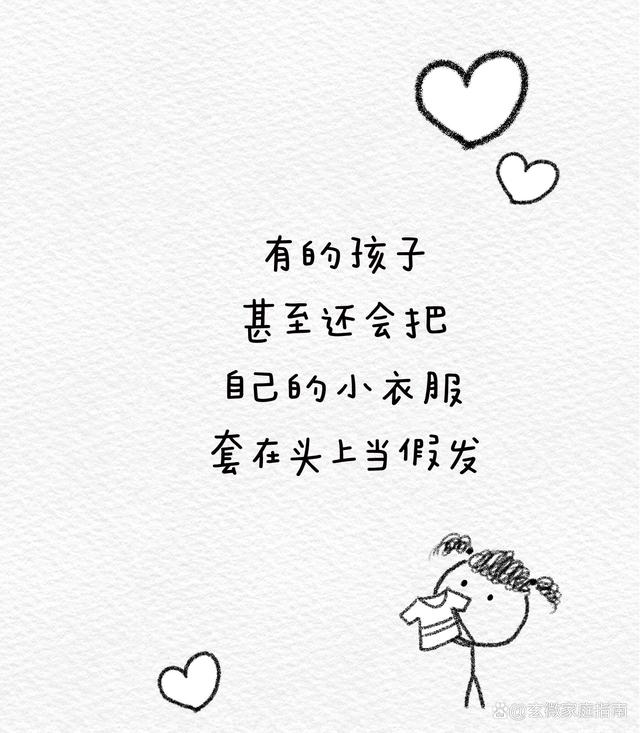 有的孩子
甚至还会把
自己的小衣服
套在头上当假发
@玄微家庭指南